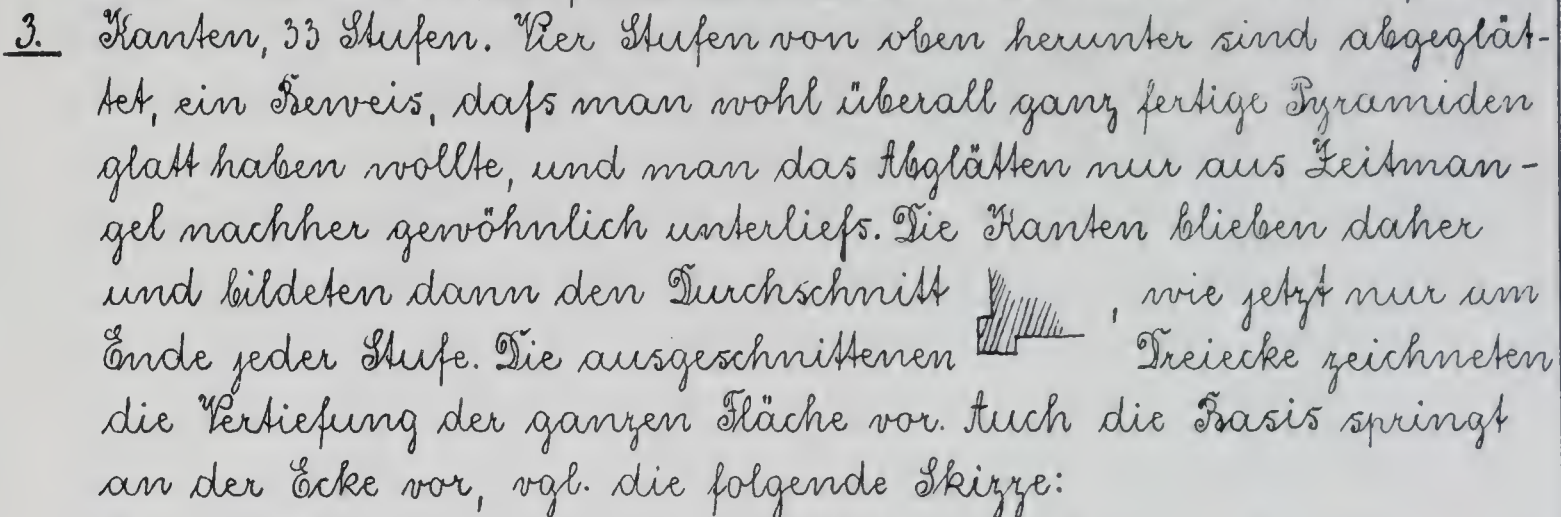 3. Kanten, 33 Stufen. Vier Stufen von oben herunter sind abgeglät-
tet, ein Beweis, dafs man wohl überall ganz fertige Pyramiden
glatt haben wollte, und man das Abglätten nur aus Zeitman-
gel nachher gewöhnlich unterliefs. Die Kanten blieben daher
und bildeten dann den Durchschnitt , wie jetzt nur um
Ende jeder Stufe. Die ausgeschnittenen Dreiecke zeichneten
die Vertiefung der ganzen Fläche vor. Auch die Basis springt
an der Ecke vor, vgl. die folgende Skizze: